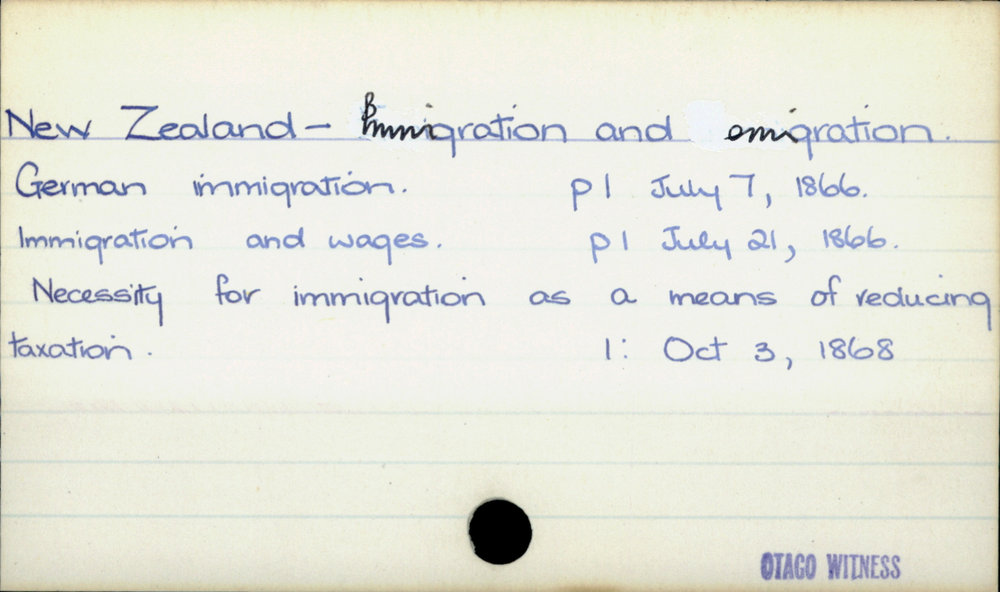 New Zealand - Immigration and emigration.
German immigration. p1 July 7, 1866.
Immigration and wages. p1 July 21, 1866.
Necessity for immigration as a means of reducing
taxation. 1: Oct 3, 1868
OTAGO WITNESS